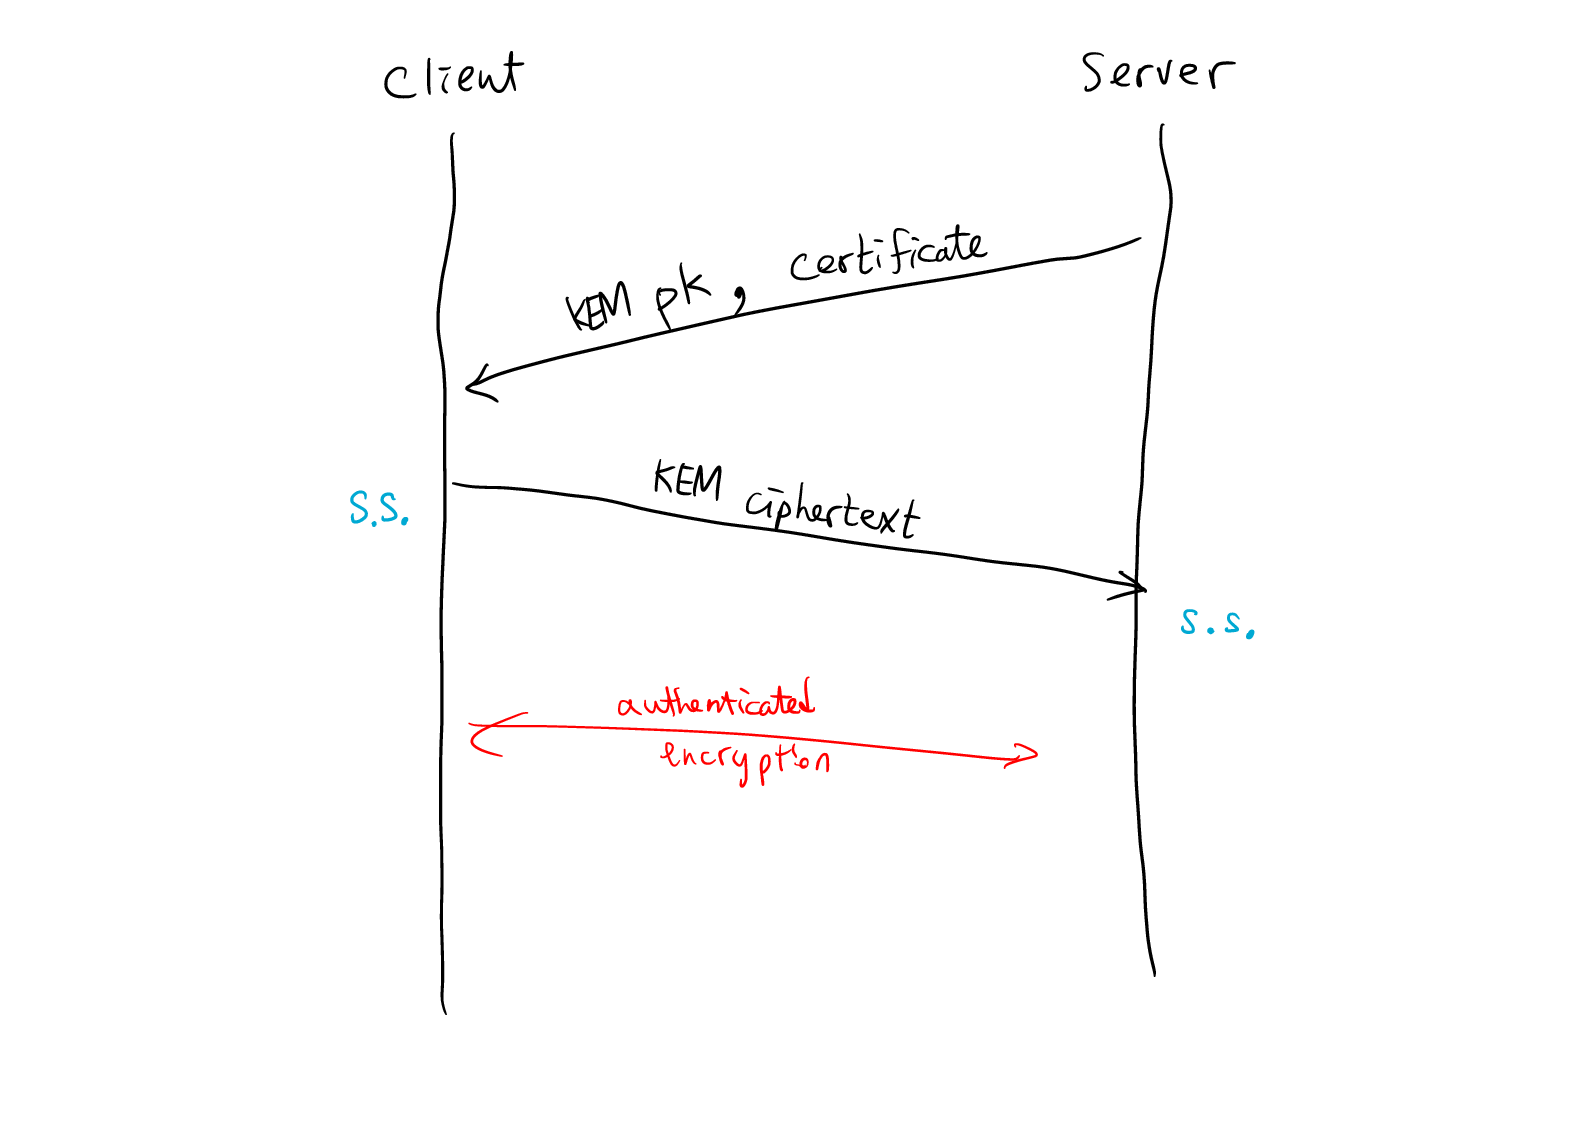 Client
Server
KEM pk, certificate
KEM ciphertext
s.s.
s.s.
authenticated
encryption